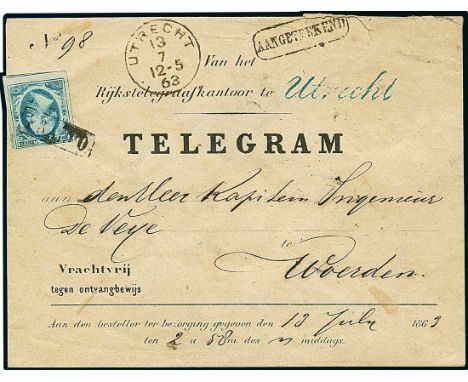 No 98
UTRECHT
13
7
12-5
63
AANGETEEKEND
Van het
Rijkstelegraafkantoor te Utrecht
TELEGRAM
aan den Heer Kapitein Ingenieur
De Veye
te
Woerden.
Vrachtvrij
tegen ontvangbewijs
Aan den besteller ter bezorging gegeven den 13 July 1863
ten 2 u 58 m des n middags.